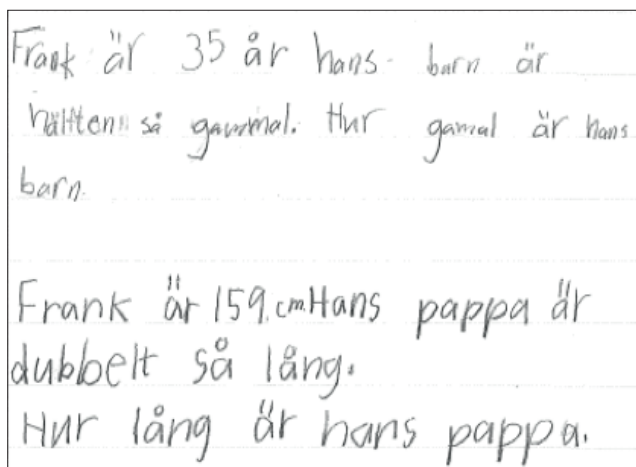 Frank är 35 år hans barn är
hälften så gammal. Hur gamal är hans
barn.
Frank är 159 cm. Hans pappa är
dubbelt så lång.
Hur lång är hans pappa.